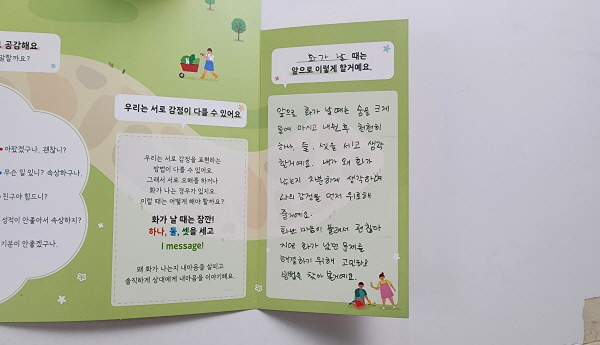 공감해요
말할까요?
아팠겠구나, 괜찮니?
무슨 일 있니? 속상하구나.
친구야 힘드니?
성적이 안좋아서 속상하지?
기분이 안좋겠구나.
우리는 서로 감정이 다를 수 있어요
우리는 서로 감정을 표현하는
방법이 다를 수 있어요.
그래서 서로 오해를 하거나
화가 나는 경우가 있지요.
이럴 때는 어떻게 해야 할까요?
화가 날 때는 잠깐!
하나, 둘, 셋을 세고
I message!
왜 화가 나는지 내마음을 살피고
솔직하게 상대에게 내마음을 이야기해요.
화가 날 때는
앞으로 이렇게 할거예요.
앞으로 화가 날 때는 숨을 크게
들이 마시고 내쉰 후 천천히
하나, 둘, 셋을 세고 생각
할거예요. 내가 왜 화가
났는지 차분하게 생각하며
나의 감정을 먼저 위로해
줄거예요.
화난 마음이 풀려서 괜찮다
지면 화가 났던 문제를
해결하기 위해 고민하고
방법을 찾아 볼거예요.